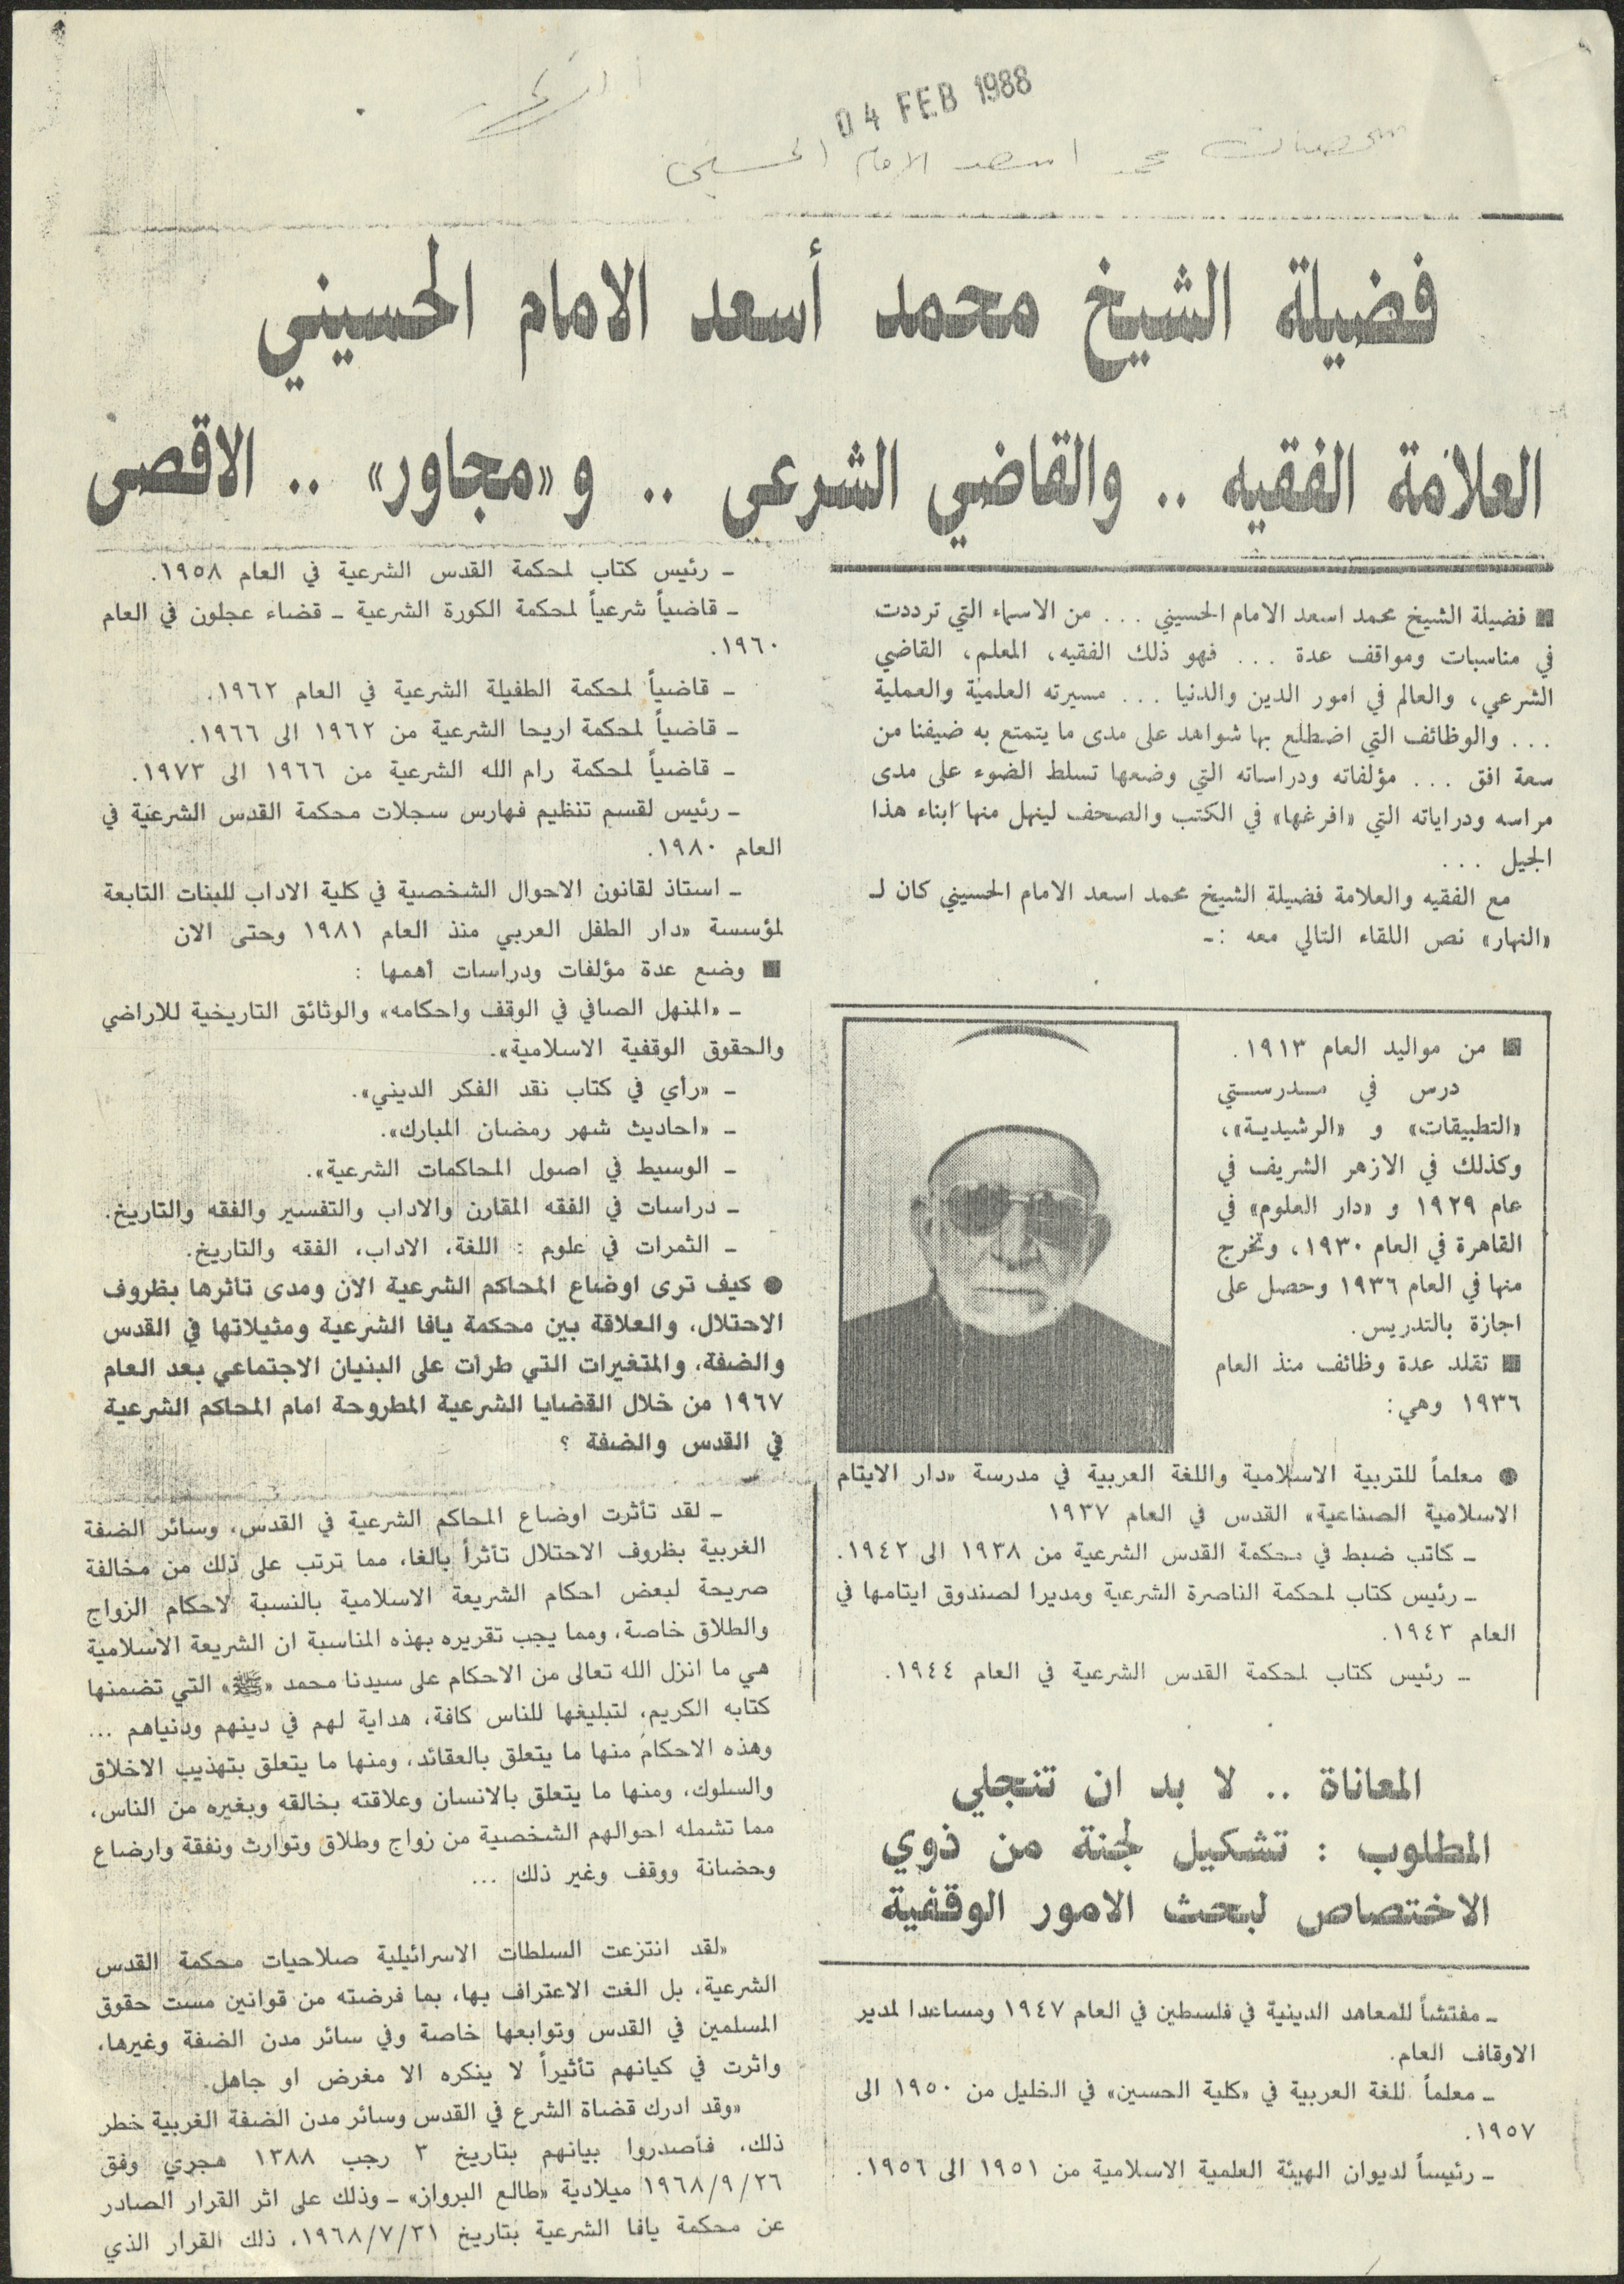 04 FEB 1988
محمد اسعد الامام الحسيني
فضيلة الشيخ محمد أسعد الامام الحسيني
العلامة الفقيه .. والقاضي الشرعي .. و«مجاور» .. الاقصى
■ فضيلة الشيخ محمد اسعد الامام الحسيني ... من الاسماء التي ترددت
في مناسبات ومواقف عدة ... فهو ذلك الفقيه، المعلم، القاضي
الشرعي، والعالم في امور الدين والدنيا ... مسيرته العلمية والعملية
... والوظائف التي اضطلع بها شواهد على مدى ما يتمتع به ضيفنا من
سعة افق ... مؤلفاته ودراساته التي وضعها تسلط الضوء على مدى
مراسه ودراياته التي «افرغها» في الكتب والصحف لينهل منها ابناء هذا
الجيل ...
مع الفقيه والعلامة فضيلة الشيخ محمد اسعد الامام الحسيني كان لـ
«النهار» نص اللقاء التالي معه :ـ
■ من مواليد العام ١٩١٣.
درس في مدرستي
«التطبيقات» و «الرشيدية»،
وكذلك في الازهر الشريف في
عام ١٩٢٩ و «دار العلوم» في
القاهرة في العام ١٩٣٠، وتخرج
منها في العام ١٩٣٦ وحصل على
اجازة بالتدريس.
■ تقلد عدة وظائف منذ العام
١٩٣٦ وهي:
● معلماً للتربية الاسلامية واللغة العربية في مدرسة «دار الايتام
الاسلامية الصناعية» القدس في العام ١٩٣٧
ـ كاتب ضبط في محكمة القدس الشرعية من ١٩٣٨ الى ١٩٤٢.
ـ رئيس كتاب لمحكمة الناصرة الشرعية ومديرا لصندوق ايتامها في
العام ١٩٤٣.
ـ رئيس كتاب لمحكمة القدس الشرعية في العام ١٩٤٤.
المعاناة .. لا بد ان تنجلي
المطلوب : تشكيل لجنة من ذوي
الاختصاص لبحث الامور الوقفية
ـ مفتشاً للمعاهد الدينية في فلسطين في العام ١٩٤٧ ومساعدا لمدير
الاوقاف العام.
ـ معلماً للغة العربية في «كلية الحسين» في الخليل من ١٩٥٠ الى
١٩٥٧.
ـ رئيساً لديوان الهيئة العلمية الاسلامية من ١٩٥١ الى ١٩٥٦.
ـ رئيس كتاب لمحكمة القدس الشرعية في العام ١٩٥٨.
ـ قاضياً شرعياً لمحكمة الكورة الشرعية ـ قضاء عجلون في العام
١٩٦٠.
ـ قاضياً لمحكمة الطفيلة الشرعية في العام ١٩٦٢.
ـ قاضياً لمحكمة اريحا الشرعية من ١٩٦٢ الى ١٩٦٦.
ـ قاضياً لمحكمة رام الله الشرعية من ١٩٦٦ الى ١٩٧٣.
ـ رئيس لقسم تنظيم فهارس سجلات محكمة القدس الشرعية في
العام ١٩٨٠.
ـ استاذ لقانون الاحوال الشخصية في كلية الاداب للبنات التابعة
لمؤسسة «دار الطفل العربي منذ العام ١٩٨١ وحتى الان
■ وضع عدة مؤلفات ودراسات أهمها :
ـ «المنهل الصافي في الوقف واحكامه» والوثائق التاريخية للاراضي
والحقوق الوقفية الاسلامية».
ـ «رأي في كتاب نقد الفكر الديني».
ـ «احاديث شهر رمضان المبارك».
ـ الوسيط في اصول المحاكمات الشرعية».
ـ دراسات في الفقه المقارن والاداب والتفسير والفقه والتاريخ.
ـ الثمرات في علوم : اللغة، الاداب، الفقه والتاريخ.
● كيف ترى اوضاع المحاكم الشرعية الان ومدى تأثرها بظروف
الاحتلال، والعلاقة بين محكمة يافا الشرعية ومثيلاتها في القدس
والضفة، والمتغيرات التي طرأت على البنيان الاجتماعي بعد العام
١٩٦٧ من خلال القضايا الشرعية المطروحة امام المحاكم الشرعية
في القدس والضفة ؟
ـ لقد تأثرت اوضاع المحاكم الشرعية في القدس، وسائر الضفة
الغربية بظروف الاحتلال تأثراً بالغا، مما ترتب على ذلك من مخالفة
صريحة لبعض احكام الشريعة الاسلامية بالنسبة لاحكام الزواج
والطلاق خاصة، ومما يجب تقريره بهذه المناسبة ان الشريعة الاسلامية
هي ما انزل الله تعالى من الاحكام على سيدنا محمد «ﷺ» التي تضمنها
كتابه الكريم، لتبليغها للناس كافة، هداية لهم في دينهم ودنياهم ...
وهذه الاحكام منها ما يتعلق بالعقائد، ومنها ما يتعلق بتهذيب الاخلاق
والسلوك، ومنها ما يتعلق بالانسان وعلاقته بخالقه وبغيره من الناس،
مما تشمله احوالهم الشخصية من زواج وطلاق وتوارث ونفقة وارضاع
وحضانة ووقف وغير ذلك ...
«لقد انتزعت السلطات الاسرائيلية صلاحيات محكمة القدس
الشرعية، بل الغت الاعتراف بها، بما فرضته من قوانين مست حقوق
المسلمين في القدس وتوابعها خاصة وفي سائر مدن الضفة وغيرها،
واثرت في كيانهم تأثيراً لا ينكره الا مغرض او جاهل.
«وقد ادرك قضاة الشرع في القدس وسائر مدن الضفة الغربية خطر
ذلك، فأصدروا بيانهم بتاريخ ٣ رجب ١٣٨٨ هجري وفق
١٩٦٨/٩/٢٦ ميلادية «طالع البرواز» ـ وذلك على اثر القرار الصادر
عن محكمة يافا الشرعية بتاريخ ١٩٦٨/٧/٣١، ذلك القرار الذي